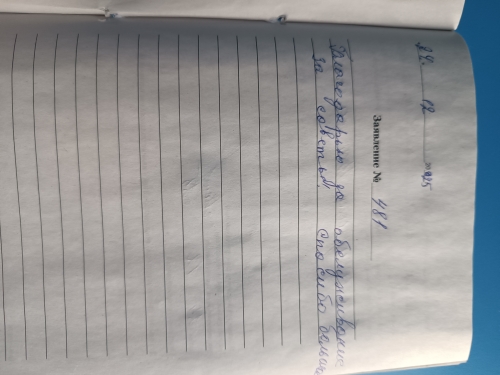 22. 12 2025
Заявление № 481
Благодарю за обслуживание
за советы! спасибо большое